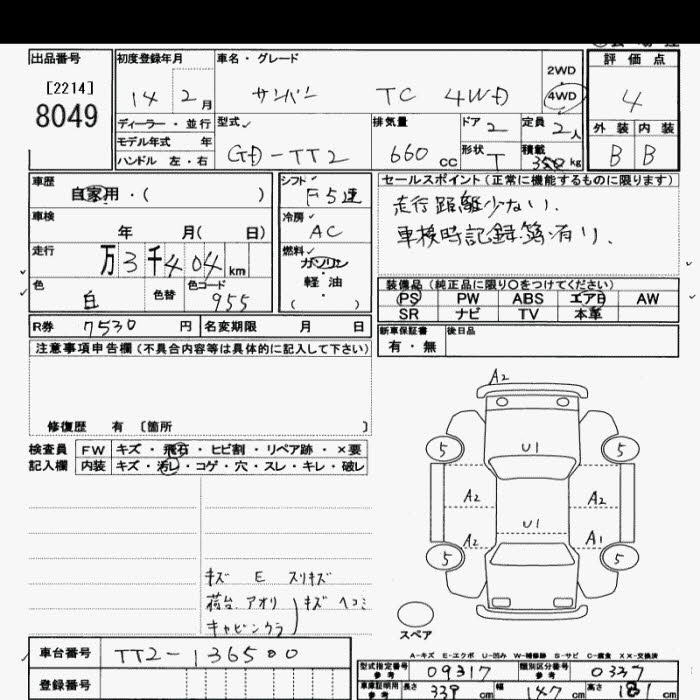 出品番号
[2214]
8049
初度登録年月
14 2月
ディーラー・並行
モデル年式 年
ハンドル 左・右
車名・グレード
サンバー TC 4WD
2WD
4WD
評価点
4
外装 内装
B B
型式
GD-TT2
排気量
660 cc
ドア 2
形状 T
定員 2人
積載
350 kg
車歴
自家用・( )
車検
年 月( 日)
走行
万3千404 km
色
白
色替
色コード
955
シフト
F5速
冷房
AC
燃料
ガソリン
軽油
( )
セールスポイント(正常に機能するものに限ります)
走行距離少ない、
車検時記録簿有り、
装備品(純正品に限り○をつけてください)
PS PW ABS エアB AW
SR ナビ TV 本革
R券 7530 円
名変期限 月 日
新車保証書
有・無
後日品
注意事項申告欄(不具合内容等は具体的に記入して下さい)
修復歴 有 [箇所 ]
検査員
記入欄
FW キズ・飛石・ヒビ割・リペア跡・×要
内装 キズ・汚レ・コゲ・穴・スレ・キレ・破レ
キズ E スリキズ
荷台.アオリ
キャビンウラ
キズ ヘコミ
A2
5 5
U1
A2 A2
U1
A2 A1
5 5
スペア
A-キズ E-エクボ U-凹み W-補修跡 S-サビ C-腐食 XX-交換済
車台番号 TT2-136500
登録番号
型式指定番号
参考
09317
類別区分番号
参考
0337
車庫証明用
参考
長さ 339 cm 幅 147 cm 高さ 181 cm